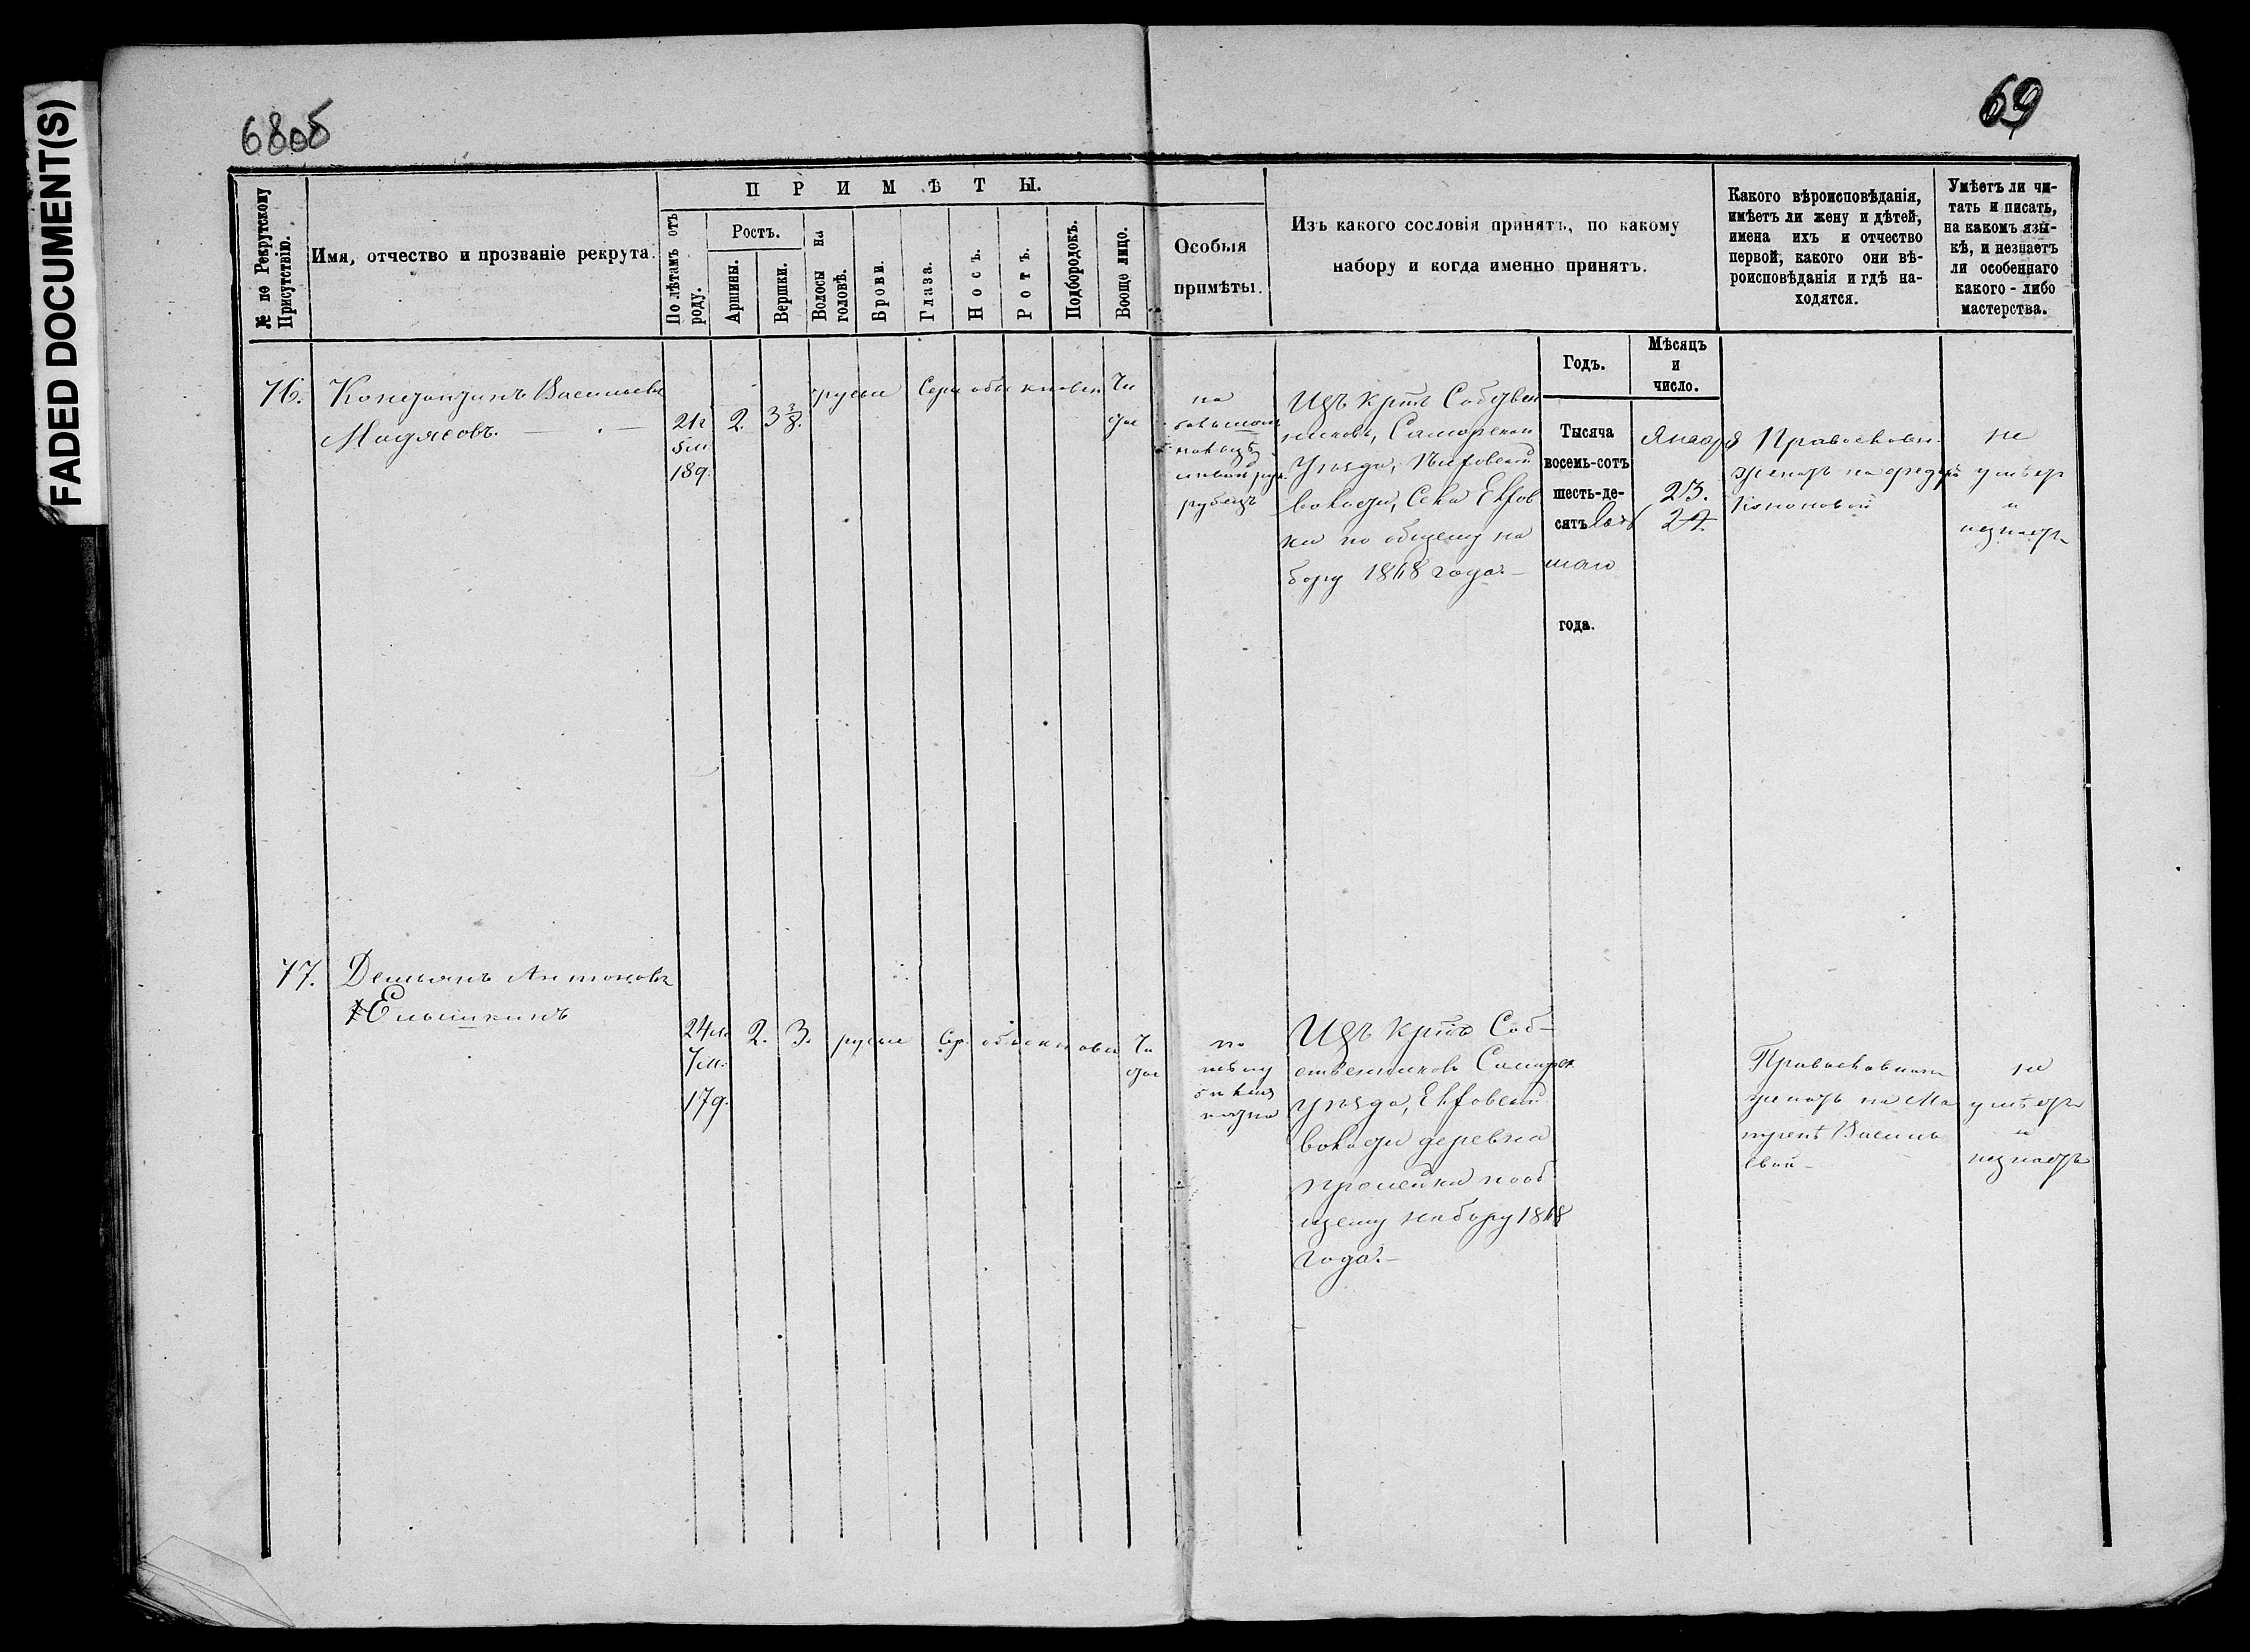 FADED DOCUMENT(S)
68об
69
№ по Рекрутскому Присутствію.
Имя, отчество и прозваніе рекрута.
ПРИМѢТЫ.
По лѣтамъ отъ роду.
Ростъ.
Аршины.
Вершки.
Волосы на головѣ.
Брови.
Глаза.
Носъ.
Ротъ.
Подбородокъ.
Вооще лицо.
Особыя
примѣты.
Изъ какого сословія принятъ, по какому
набору и когда именно принятъ.
Какого вѣроисповѣданія,
имѣетъ ли жену и дѣтей,
имена ихъ и отчество
первой, какого они вѣ-
роисповѣданія и гдѣ на-
ходятся.
Умѣетъ ли чи-
тать и писать,
на какомъ язы-
кѣ, и незнаетъ
ли особеннаго
какого - либо
мастерства.
Годъ.
Мѣсяцъ
и
число.
76.
Константинъ Васильевъ
21г
5м
18д.
2.
3 3/8.
русые
Серы
обыкновен
Чи
стое
на
большом
пальцѣ
рубецъ
Изъ крпъ Собствен
никовъ, Самарскаго
Уѣзда,
волости, Села
ки по общему на
бору 1868 года.—
Тысяча
восемь-сотъ
шесть-де-
сятъ вось
маго
года.
Января
23.
Православн.
женатъ на
Кононовой
не
умѣетъ
и
незнаетъ
77.
Демьянъ Антоновъ
24л.
7м.
17д.
2.
3.
русые
Сер.
обыкновен
Чи
стое
по
тѣлу
пятна
Изъ крпъ Соб-
ственниковъ Самарск
Уѣзда,
волости деревни
по об
щему набору 1868
года.—
Православнаго
женатъ на Ма
тренѣ Василь
евой—
не
умѣетъ
и
незнаетъ